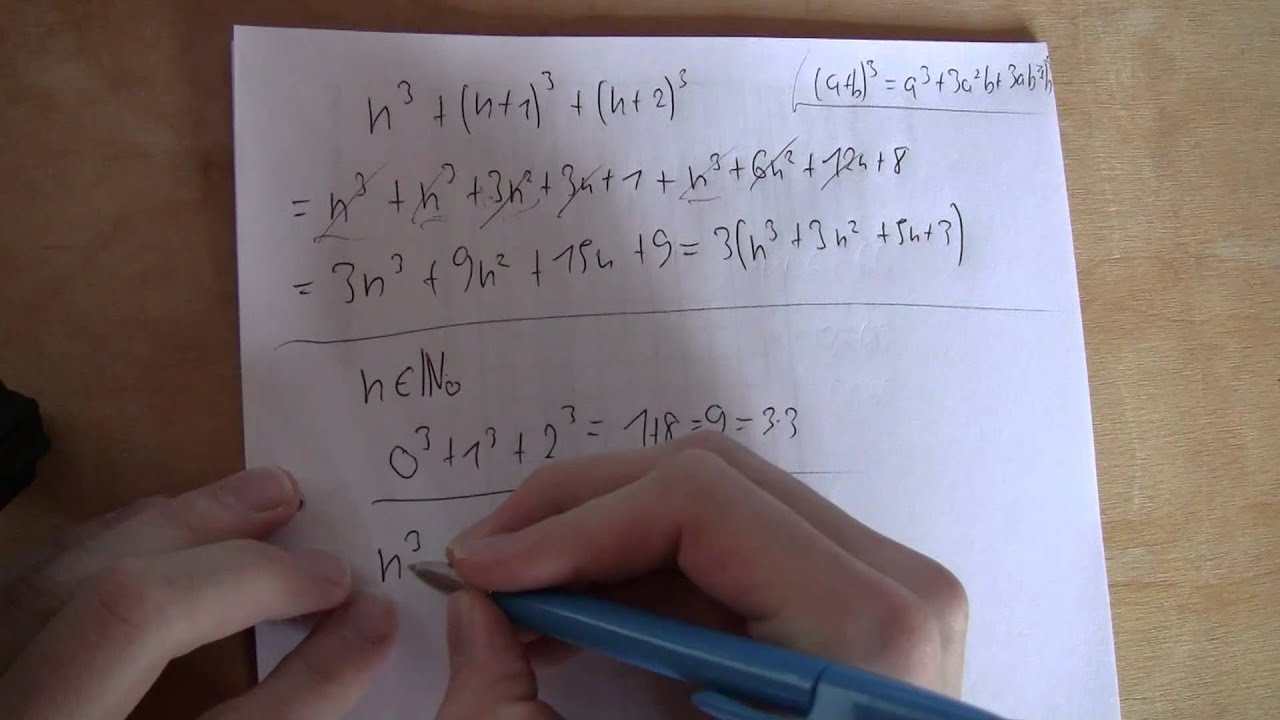 (a+b)³ = a³+3a²b+3ab²+b³
n³ + (n+1)³ + (n+2)³
= n³ + n³ + 3n² + 3n + 1 + n³ + 6n² + 12n + 8
= 3n³ + 9n² + 15n + 9 = 3(n³ + 3n² + 5n + 3)
n ∈ ℕ₀
0³ + 1³ + 2³ = 1+8 = 9 = 3·3
n³